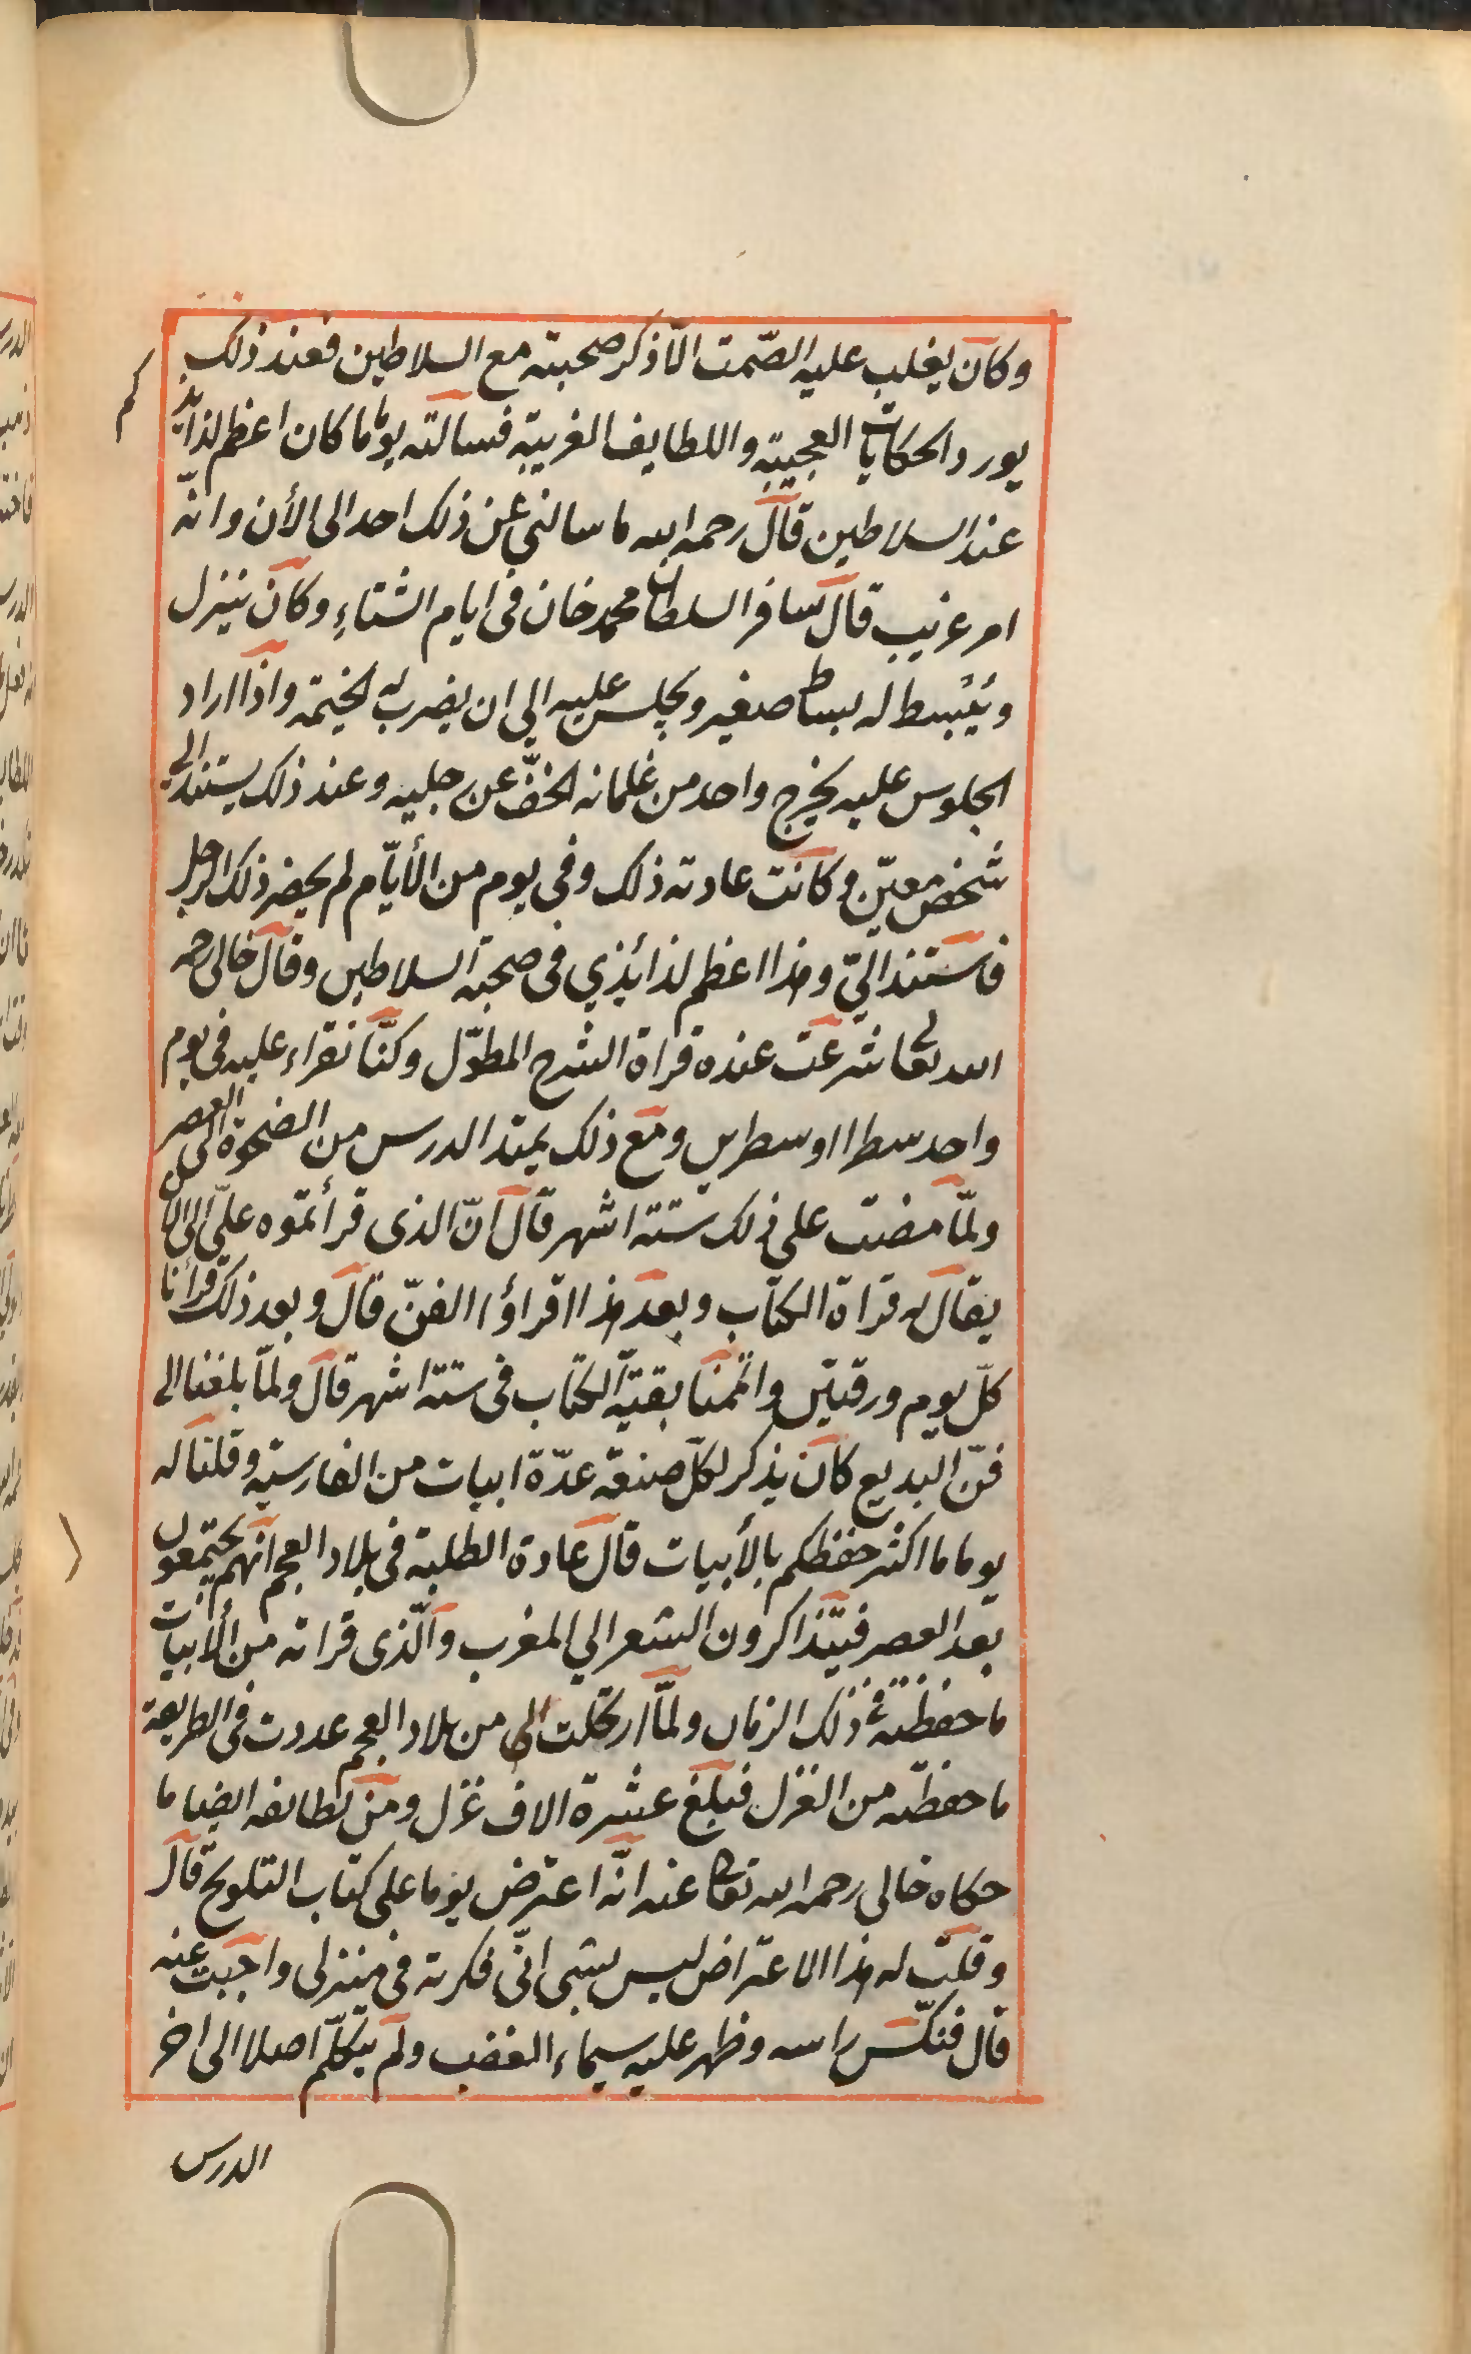 وكان يغلب عليه الصّمت الّا ذكر صحبته مع السلاطين فعند ذلك
يورد الحكايات العجيبة واللطايف الغريبة فسالته يوما ما كان اعظم لذايذ
كم
عند السلاطين قال رحمه الله ما سالني عن ذلك احد الى الأن وانّه
امر غريب قال سافر السلطان محمد خان فى ايام الشتاء وكان ينزل
ويُبسط له بساط صغير ويجلس عليه الي ان يضرب له الخيمة واذا اراد
الجلوس عليه يخرج واحد من غلمانه الخفّ عن رجليه وعند ذلك يستند الى
شخص معيّن وكانت عادته ذلك وفي يوم من الأيّام لم يحضر ذلك الرجل
فاستند اليّ وهذا اعظم لذائذي فى صحبة السلاطين وقال خالى رحمه
الله تعالى شرعت عنده قراة الشرح المطوّل وكنّا نقراء عليه فى يوم
واحد سطرا او سطرين ومع ذلك يمتد الدرس من الضحوة الى العصر
ولمّا مضت على ذلك ستة اشهر قال انّ الذى قرأتموه عليّ الى الأن
يقال له قراة الكتاب وبعد هذا اقراؤا الفنّ قال وبعد ذلك قرأنا
كلّ يوم ورقتين واتممنا بقيّة الكتاب فى ستة اشهر قال ولمّا بلغنا الى
فنّ البديع كان يذكر لكلّ صنعة عدّة ابيات من الفارسيّة وقلنا له
يوما ما اكثر حفظكم بالأبيات قال عادة الطلبة فى بلاد العجم انهم يجتمعون
بعد العصر فيتذاكرون الشعر الي المغرب والّذى قراته من الأبيات
ما حفظته فى ذلك الزمان ولمّا ارتحلت الى من بلاد العجم عددت فى الطريق
ما حفظته من الغزل فبلغ عشرة الاف غزل ومن لطائفه ايضا ما
حكاه خالى رحمه الله تعالى عنه انّه اعترض يوما على كتاب التلويح قال
وقلت له هذا الاعتراض ليس بشى انّى فكرته فى منزلى واجبت عنه
قال فنكّس راسه وظهر عليه سيماء الغضب ولم يتكلّم اصلا الى اخر
الدرس